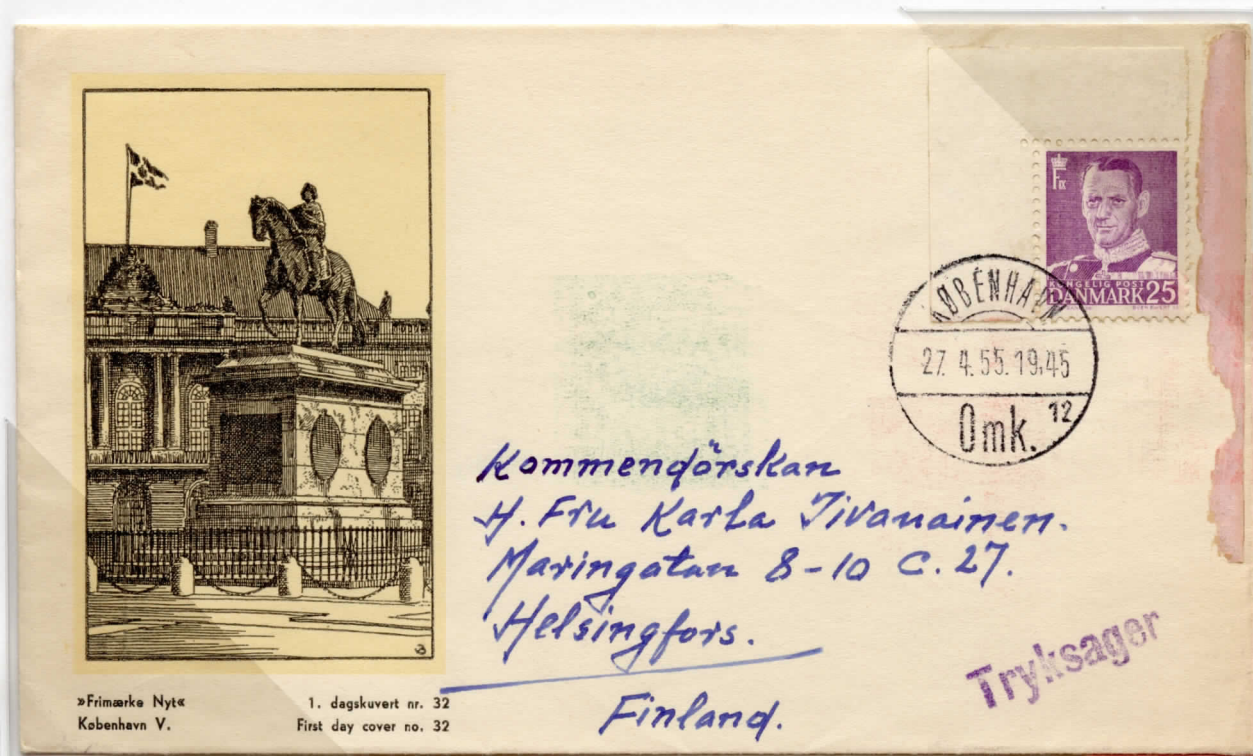 KONGELIG POST
DANMARK 25
KØBENHAVN
27. 4. 55. 19.45
Omk. 12
Kommendörskan
H. Fru Karla Iivanainen.
Maringatan 8-10 C. 27.
Helsingfors.
Finland.
Tryksager
»Frimærke Nyt« 1. dagskuvert nr. 32
København V. First day cover no. 32